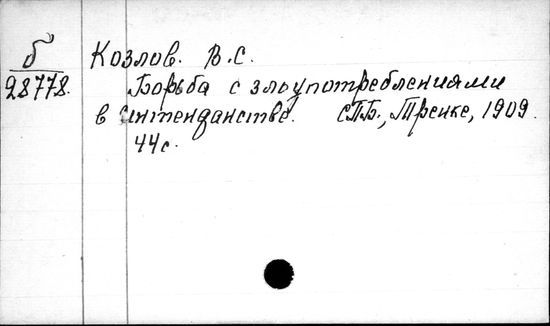 б
28778.
Козлов. В.С.
Борьба с злоупотреблениями
в интендантстве. СПБ., Тренке, 1909.
44 с.